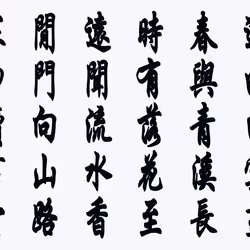 春與青溪長
時有落花至
遠聞流水香
閒門向山路